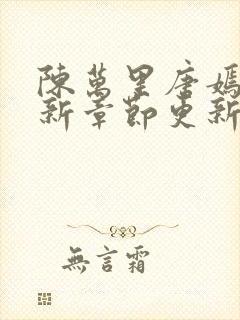 陳萬里唐嫣
新章節更新
無言霜